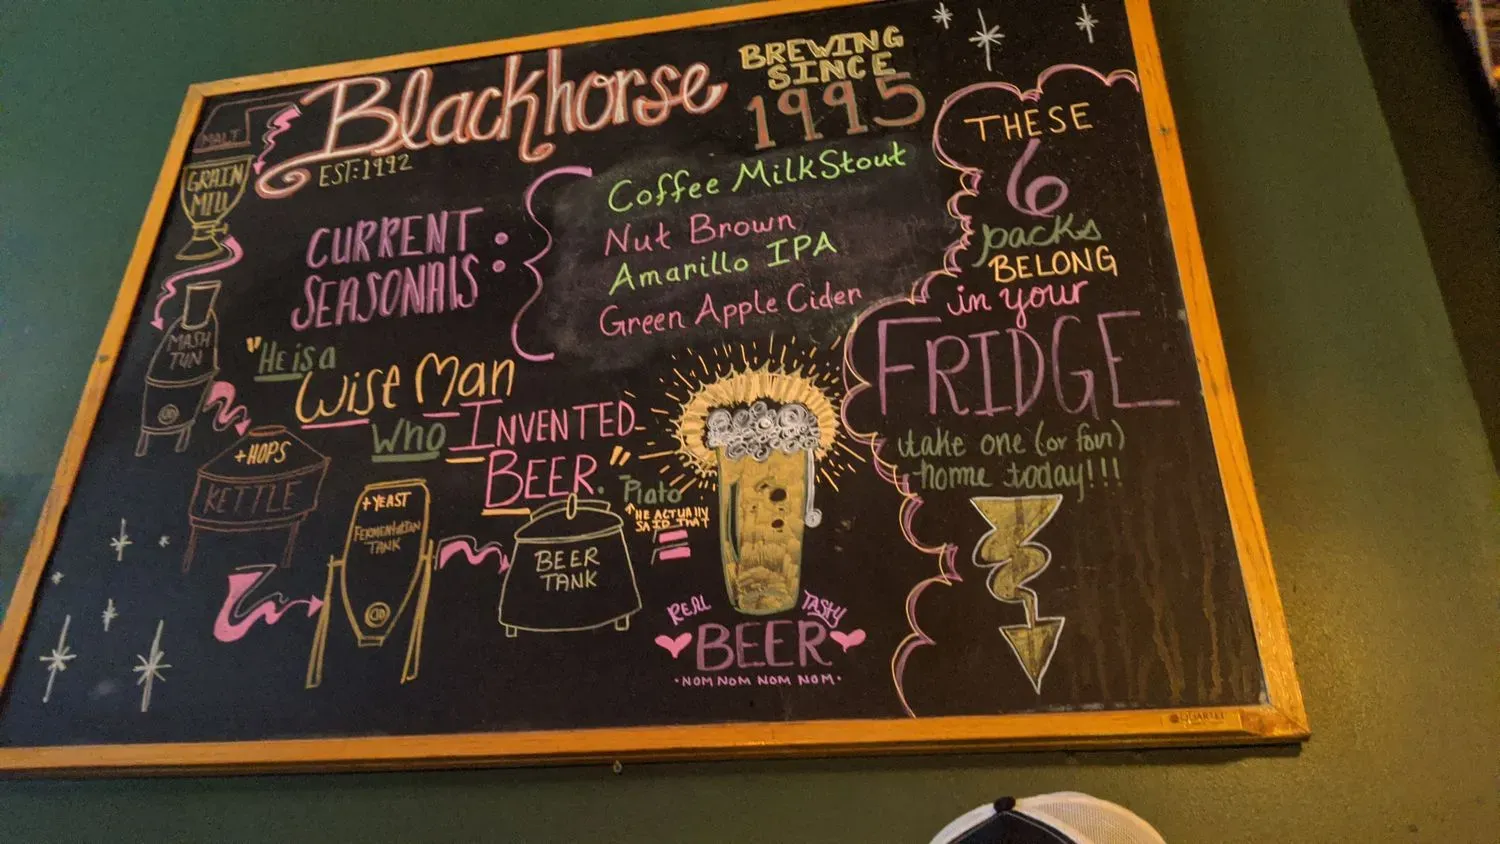 Blackhorse
EST:1992
BREWING
SINCE
1995
MALT
GRAIN
MILL
MASH
TUN
+HOPS
KETTLE
+YEAST
FERMENTATION
TANK
BEER
TANK
CURRENT
SEASONALS :
Coffee Milk Stout
Nut Brown
Amarillo IPA
Green Apple Cider
"He is a
Wise Man
Who INVENTED
BEER." - Plato
↑HE ACTUALLY
SAID THAT
REAL TASTY
BEER
·NOM NOM NOM NOM·
THESE
6
packs
BELONG
in your
FRIDGE
take one (or four)
home today!!!
QUARTET